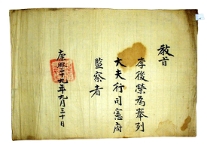 敎旨
李後榮爲奉列
大夫行司憲府
監察者
康熙二十九年九月三十日